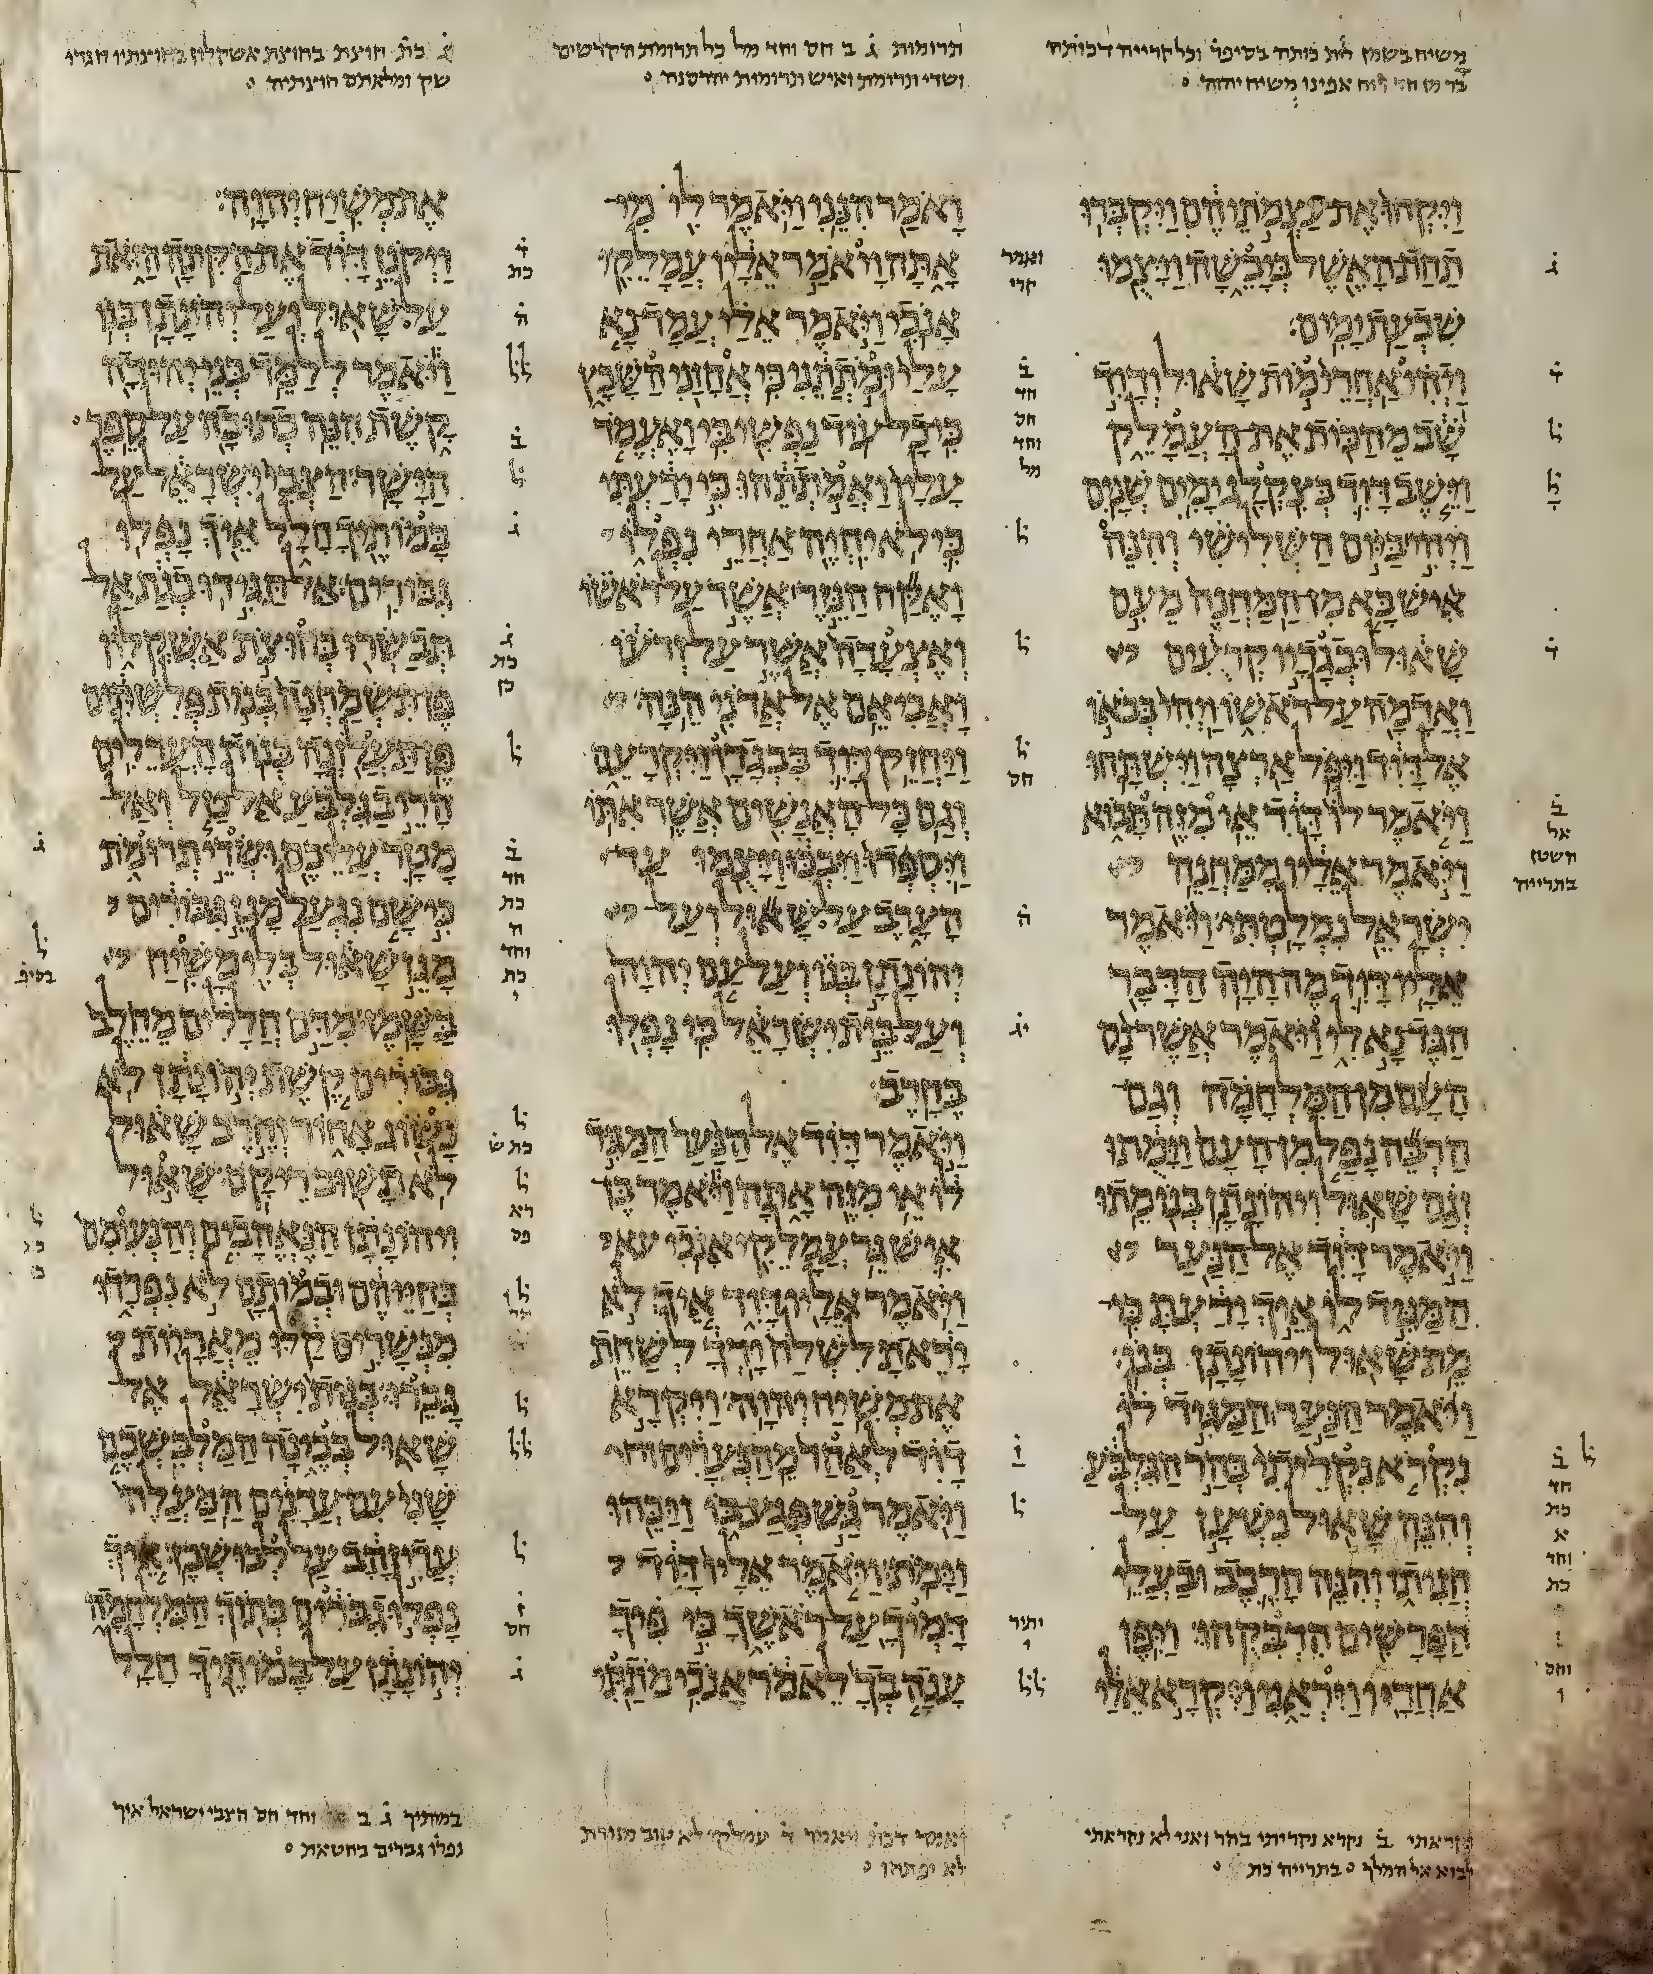 משיח בשמן לית כותה בסיפר וכל קרייה דכותה
בר מן חד רוח אפינו משיח יהוה
תרומות ג ב חס וחד מל כל תרומת הקדשים
ושדי תרומת ואיש תרומות יהרסנה
ג כת חוצת בחוצת אשקלון בחוצתיו חגרו
שק ומלאתם חוצתיה
ויקחו את עצמתיהם ויקברו
תחת האשל ביבשה ויצמו
שבעת ימים׃
ויהי אחרי מות שאול ודוד
שב מהכות את העמלק
וישב דוד בצקלג ימים שנים
ויהי ביום השלישי והנה
איש בא מן המחנה מעם
שאול ובגדיו קרעים
ואדמה על ראשו ויהי בבאו
אל דוד ויפל ארצה וישתחו
ויאמר לו דוד אי מזה תבוא
ויאמר אליו ממחנה
ישראל נמלטתי ויאמר
אליו דוד מה היה הדבר
הגד נא לי ויאמר אשר נס
העם מן המלחמה וגם
הרבה נפל מן העם וימתו
וגם שאול ויהונתן בנו מתו
ויאמר דוד אל הנער
המגיד לו איך ידעת כי
מת שאול ויהונתן בנו
ויאמר הנער המגיד לו
נקרא נקריתי בהר הגלבע
והנה שאול נשען על
חניתו והנה הרכב ובעלי
הפרשים הדבקהו ויפן
אחריו ויראני ויקרא אלי
ואמר הנני ויאמר לי מי
אתה ויאמר אליו עמלקי
אנכי ויאמר אלי עמד נא
עלי ומתתני כי אחזני השבץ
כי כל עוד נפשי בי ואעמד
עליו ואמתתהו כי ידעתי
כי לא יחיה אחרי נפלו
ואקח הנזר אשר על ראשו
ואצעדה אשר על זרעו
ואביאם אל אדני הנה
ויחזק דוד בבגדו ויקרעם
וגם כל האנשים אשר אתו
ויספדו ויבכו ויצמו עד
הערב על שאול ועל
יהונתן בנו ועל עם יהוה
ועל בית ישראל כי נפלו
בחרב׃
ויאמר דוד אל הנער המגיד
לו אי מזה אתה ויאמר בן
איש גר עמלקי אנכי
ויאמר אליו דוד איך לא
יראת לשלח ידך לשחת
את משיח יהוה ויקרא
דוד לאחד מהנערים
ויאמר גש פגע בו ויכהו
וימת ויאמר אליו דוד
דמיך על ראשך כי פיך
ענה בך לאמר אנכי מתתי
את משיח יהוה׃
ויקנן דוד את הקינה הזאת
על שאול ועל יהונתן בנו
ויאמר ללמד בני יהודה
קשת הנה כתובה על ספר
הישר הצבי ישראל על
במותיך חלל איך נפלו
גבורים אל תגידו בגת אל
תבשרו בחוצת אשקלון
פן תשמחנה בנות פלשתים
פן תעלזנה בנות הערלים
הרי בגלבע אל טל ואל
מטר עליכם ושדי תרומת
כי שם נגעל מגן גבורים
מגן שאול בלי משיח
בשמן מדם חללים מחלב
גבורים קשת יהונתן לא
נשוג אחור וחרב שאול
לא תשוב ריקם שאול
ויהונתן הנאהבים והנעימם
בחייהם ובמותם לא נפרדו
מנשרים קלו מאריות
גברו בנות ישראל אל
שאול בכינה המלבשכם
שני עם עדנים המעלה
עדי זהב על לבושכן איך
נפלו גברים בתוך המלחמה
יהונתן על במותיך חלל
נקראתי ב נקרא נקריתי בהר ואני לא נקראתי
לבוא אל המלך בתרייה כת
ואמר דכת ויאמר עמלקי לא טוב מזורת
לא יפתהו
במתיך ג ב וחד חס הצבי ישראל איך
נפלו גברים בחטאת